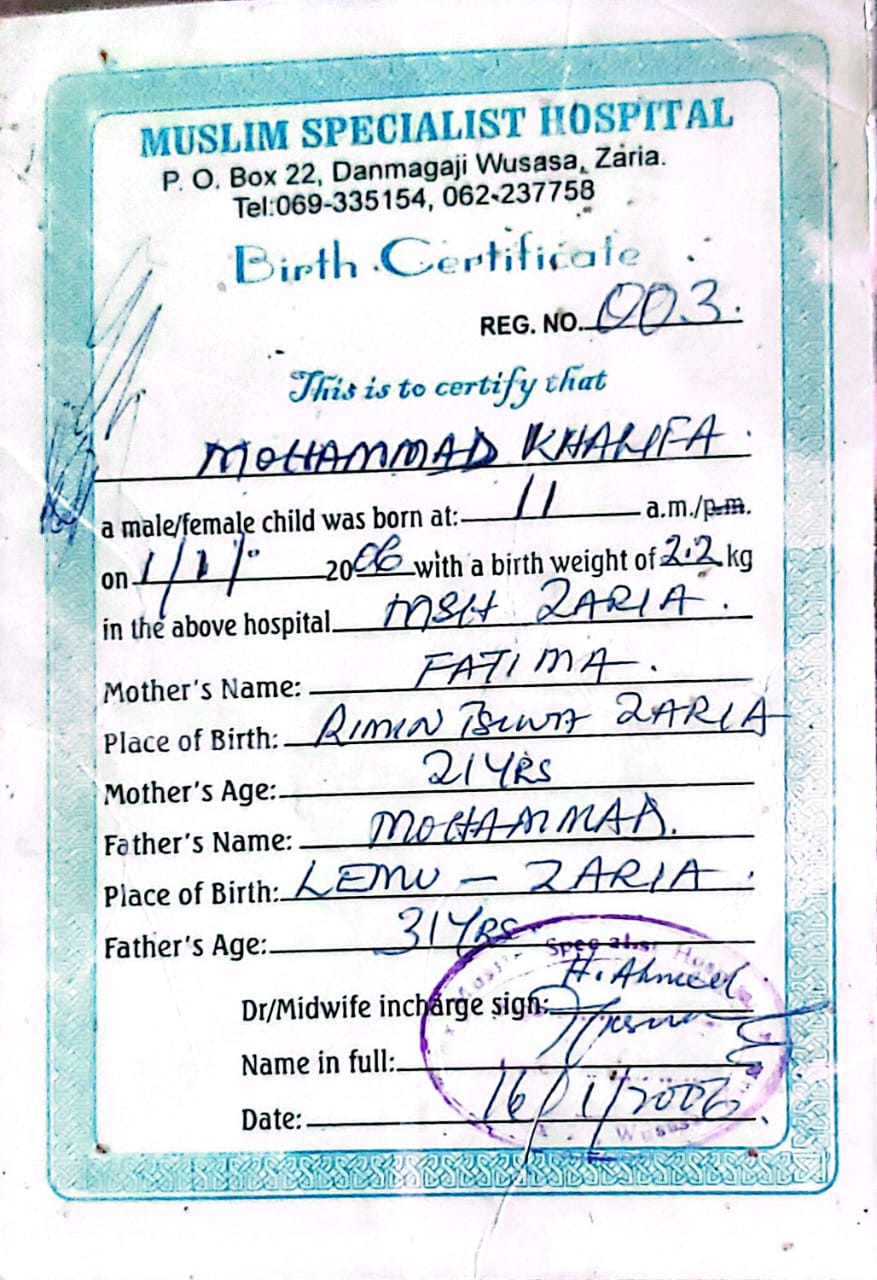 MUSLIM SPECIALIST HOSPITAL
P. O. Box 22, Danmagaji Wusasa, Zaria.
Tel:069-335154, 062-237758
Birth Certificate
REG. NO. 003.
This is to certify that
MOHAMMAD KHALIFA.
a male/female child was born at: 11 a.m./p.m.
on 1/1/ 2006 with a birth weight of 2.2 kg
in the above hospital MSH ZARIA.
Mother's Name: FATIMA.
Place of Birth: RIMIN TSIWA ZARIA
Mother's Age: 21 YRS
Father's Name: MOHAMMAD.
Place of Birth: LEMU - ZARIA.
Father's Age: 31 YRS
Specialist Hos
H. Ahmed
Dr/Midwife incharge sign:
Name in full:
Date: 16/1/2006
Wusasa